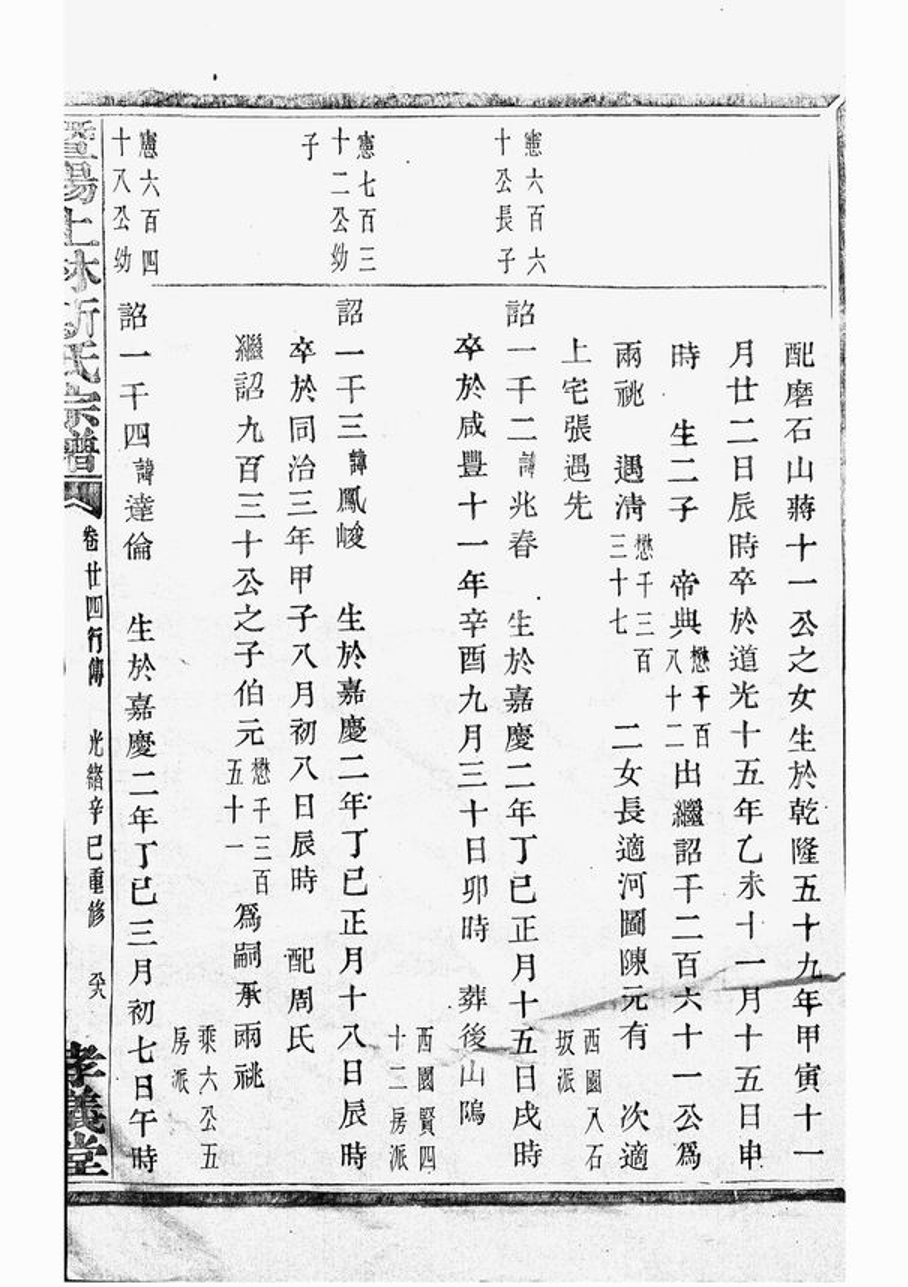 配磨石山蔣十一公之女生於乾隆五十九年甲寅十一
月廿二日辰時卒於道光十五年乙未十一月十五日申
時 生二子 帝典懋千百八十二出繼詔千二百六十一公爲
兩祧 遇淸懋千三百三十七 二女長適河圖陳元有 次適
上宅張遇先
西園入石
坂派
憲六百六
十公長子
詔一千二諱兆春 生於嘉慶二年丁巳正月十五日戌時
卒於咸豐十一年辛酉九月三十日卯時 葬後山隖
西園賢四
十二房派
憲七百三
十二公幼
子
詔一千三諱鳳峻 生於嘉慶二年丁巳正月十八日辰時
卒於同治三年甲子八月初八日辰時 配周氏
繼詔九百三十公之子伯元懋千三百五十一爲嗣承兩祧
乘六公五
房派
憲六百四
十八公幼
詔一千四諱達倫 生於嘉慶二年丁巳三月初七日午時
暨陽上林斯氏宗譜 卷廿四行傳 光緒辛巳重修 孝義堂